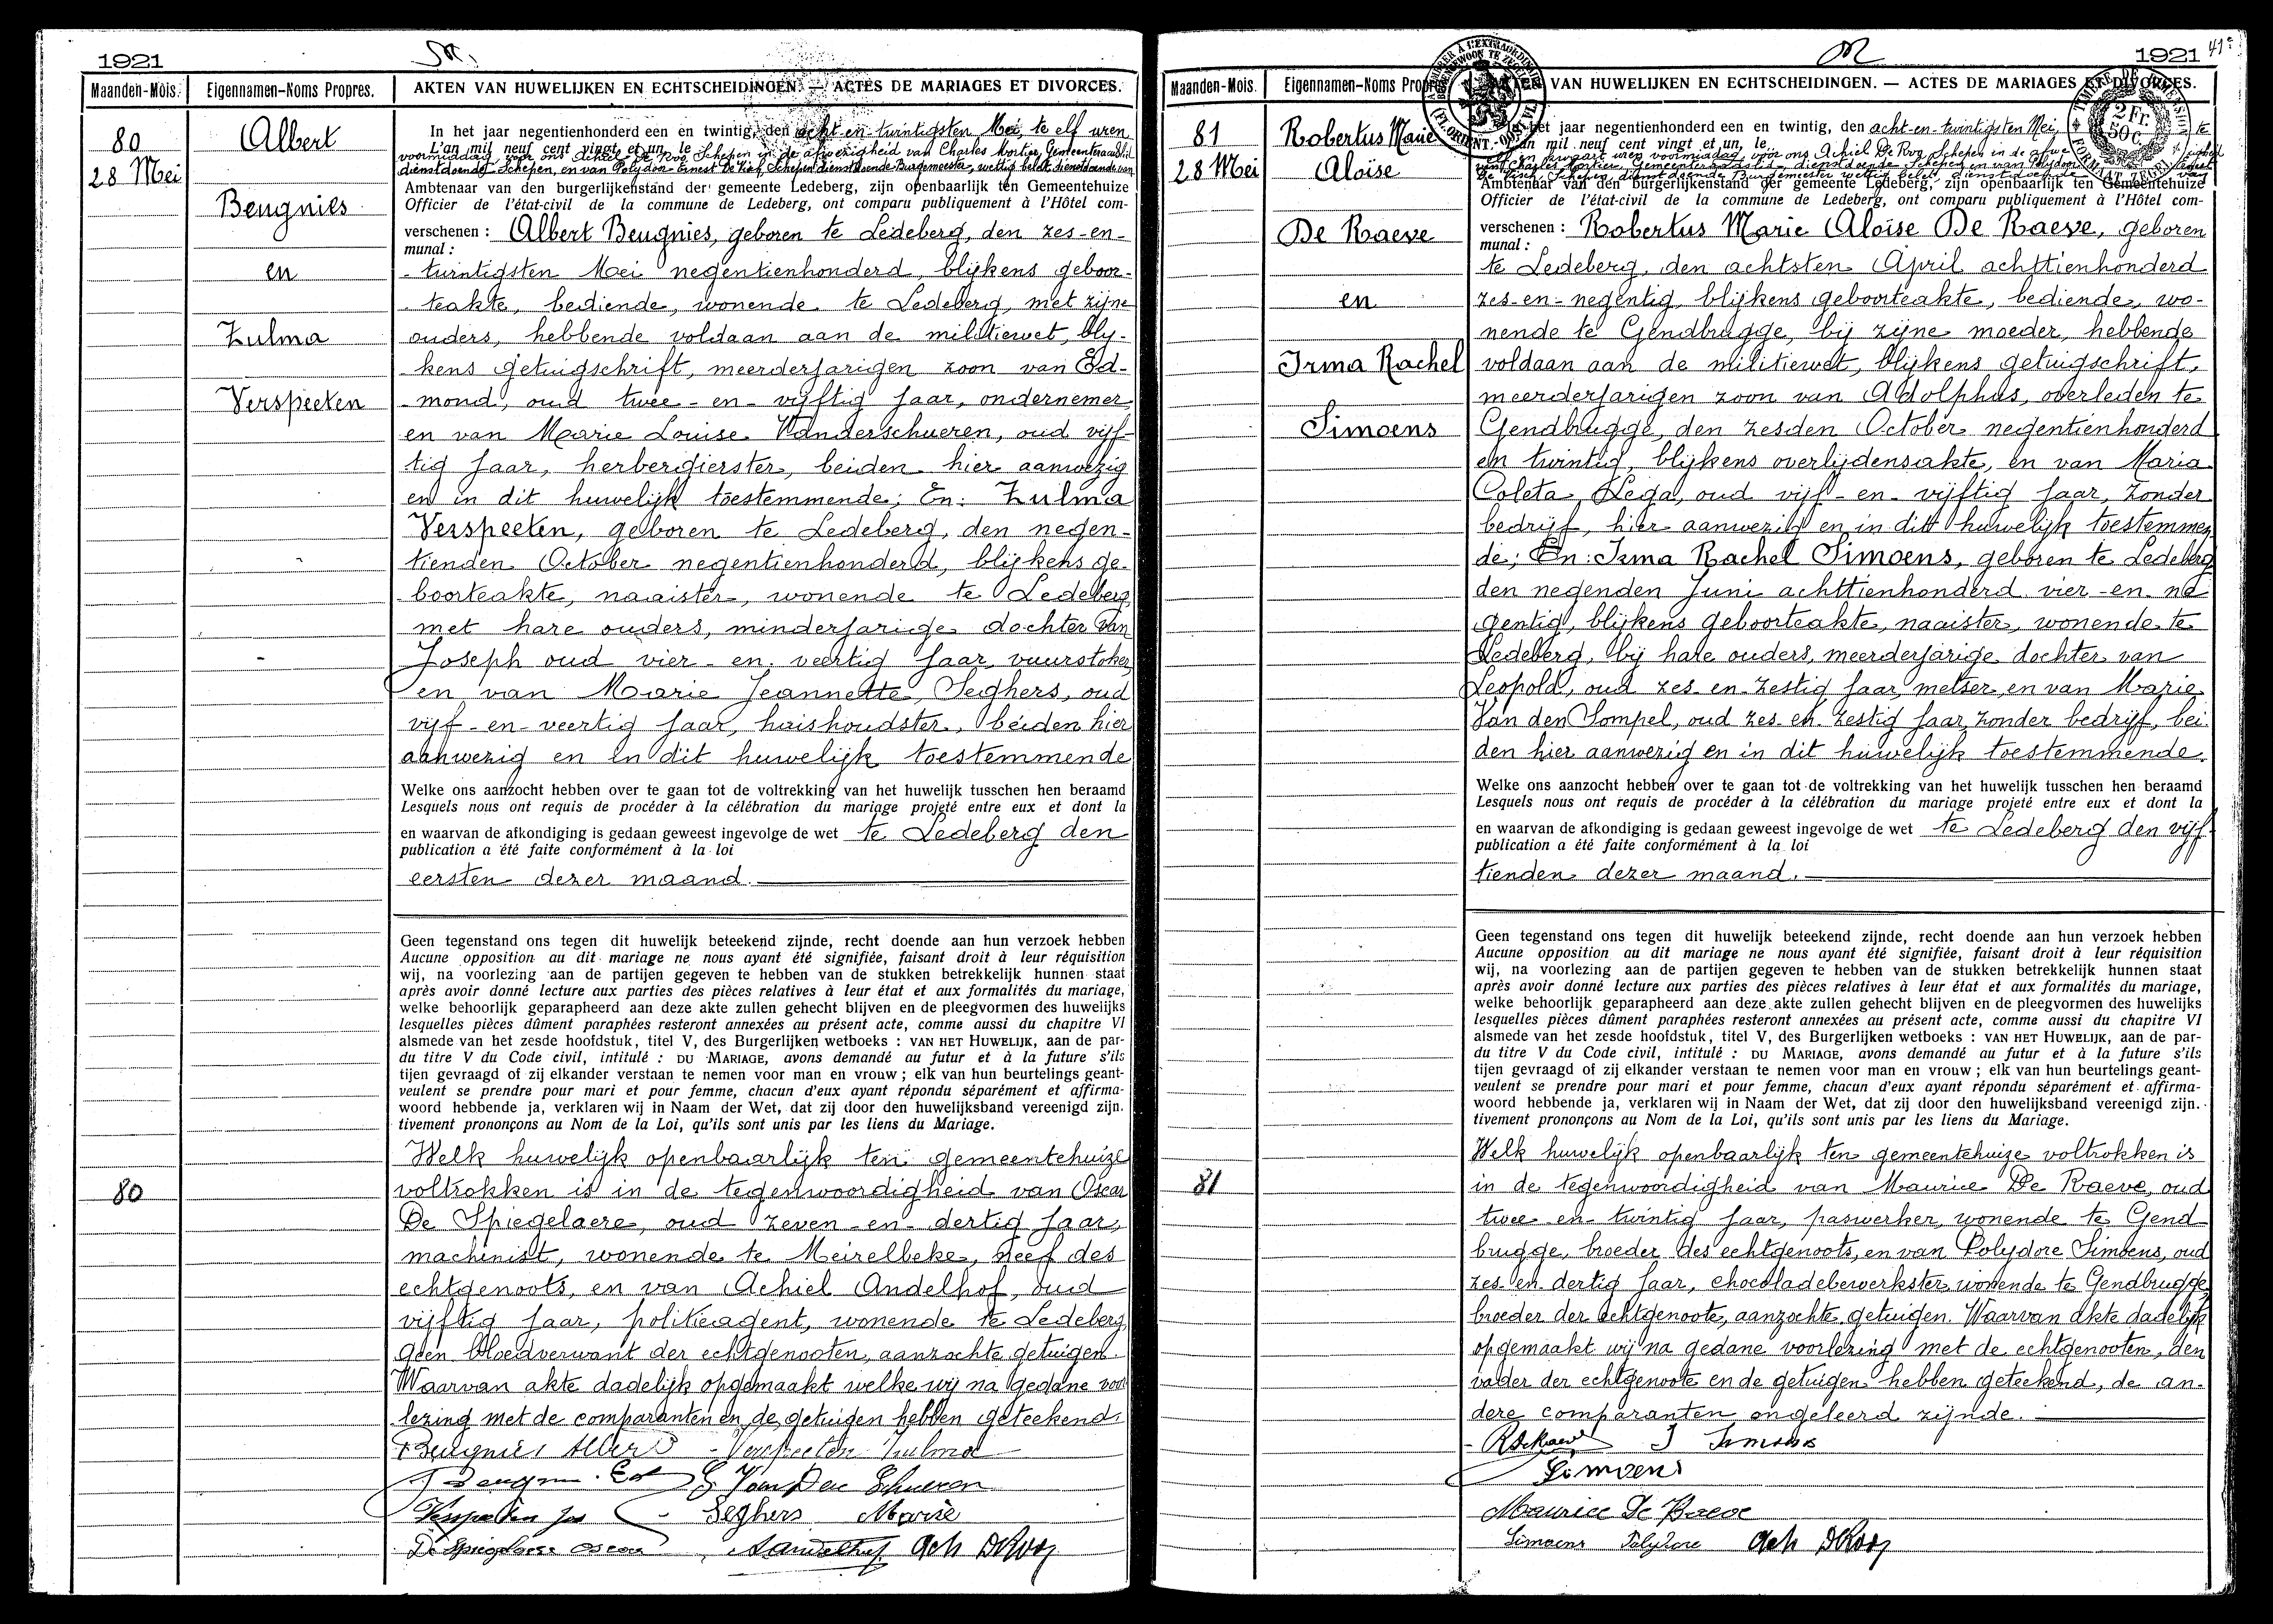 1921
Maanden-Mois.
Eigennamen-Noms Propres.
AKTEN VAN HUWELIJKEN EN ECHTSCHEIDINGEN. — ACTES DE MARIAGES ET DIVORCES.
80
28 Mei
Albert
Beugnies
en
Zulma
Verspeeten
In het jaar negentienhonderd een en twintig, den acht-en-twintigsten Mei, te elf uren
L'an mil neuf cent vingt et un, le
voormiddag, voor ons Achiel De Roo, Schepen in de afwezigheid van Charles Mortier, Gemeenteraadslid
dienstdoende Schepen, en van Polydoor Ernest De Visch, Schepen dienstdoende Burgemeester, wettig belet, dienstdoende van
Ambtenaar van den burgerlijkenstand der gemeente Ledeberg, zijn openbaarlijk ten Gemeentehuize
Officier de l'état-civil de la commune de Ledeberg, ont comparu publiquement à l'Hôtel com-
verschenen : Albert Beugnies, geboren te Ledeberg, den zes-en-
munal :
twintigsten Mei negentienhonderd, blijkens geboor-
teakte, bediende, wonende te Ledeberg, met zijne
ouders, hebbende voldaan aan de militiewet, blij-
kens getuigschrift, meerderjarigen zoon van Ed-
mond, oud twee-en-vijftig jaar, ondernemer,
en van Marie Louise Vanderschueren, oud vijf-
tig jaar, herbergierster, beiden hier aanwezig
en in dit huwelijk toestemmende; En: Zulma
Verspeeten, geboren te Ledeberg, den negen-
tienden October negentienhonderd, blijkens ge-
boorteakte, naaister, wonende te Ledeberg,
met hare ouders, minderjarige dochter van
Joseph oud vier-en-veertig jaar, vuurstoker,
en van Marie Jeannette Seghers, oud
vijf-en-veertig jaar, huishoudster, beiden hier
aanwezig en in dit huwelijk toestemmende
Welke ons aanzocht hebben over te gaan tot de voltrekking van het huwelijk tusschen hen beraamd
Lesquels nous ont requis de procéder à la célébration du mariage projeté entre eux et dont la
en waarvan de afkondiging is gedaan geweest ingevolge de wet te Ledeberg den
publication a été faite conformément à la loi
eersten dezer maand.
Geen tegenstand ons tegen dit huwelijk beteekend zijnde, recht doende aan hun verzoek hebben
Aucune opposition au dit mariage ne nous ayant été signifiée, faisant droit à leur réquisition
wij, na voorlezing aan de partijen gegeven te hebben van de stukken betrekkelijk hunnen staat
après avoir donné lecture aux parties des pièces relatives à leur état et aux formalités du mariage,
welke behoorlijk geparapheerd aan deze akte zullen gehecht blijven en de pleegvormen des huwelijks
lesquelles pièces dûment paraphées resteront annexées au présent acte, comme aussi du chapitre VI
alsmede van het zesde hoofdstuk, titel V, des Burgerlijken wetboeks : VAN HET HUWELIJK, aan de par-
du titre V du Code civil, intitulé : DU MARIAGE, avons demandé au futur et à la future s'ils
tijen gevraagd of zij elkander verstaan te nemen voor man en vrouw ; elk van hun beurtelings geant-
veulent se prendre pour mari et pour femme, chacun d'eux ayant répondu séparément et affirma-
woord hebbende ja, verklaren wij in Naam der Wet, dat zij door den huwelijksband vereenigd zijn.
tivement prononçons au Nom de la Loi, qu'ils sont unis par les liens du Mariage.
80
Welk huwelijk openbaarlijk ten gemeentehuize
voltrokken is in de tegenwoordigheid van Oscar
De Spiegelaere, oud zeven-en-dertig jaar,
machinist, wonende te Meirelbeke, neef des
echtgenoots, en van Achiel Andelhof, oud
vijftig jaar, politieagent, wonende te Ledeberg,
geen bloedverwant der echtgenooten, aanzochte getuigen.
Waarvan akte dadelijk opgemaakt welke wij na gedane voor
lezing met de comparanten en de getuigen hebben geteekend.
Beugnies Albert - Verspeeten Zulma
Beugnies Ed E Van Der Schueren
Verspeeten Jos - Seghers Marie
De Spiegelaere Oscar, Aandelhof Ach DRoo
1921
41e
Maanden-Mois.
Eigennamen-Noms Propres.
VAN HUWELIJKEN EN ECHTSCHEIDINGEN. — ACTES DE MARIAGES ET DIVORCES.
2 Fr.
50 c.
81
28 Mei
Robertus Marie
Aloïse
De Raeve
en
Irma Rachel
Simoens
het jaar negentienhonderd een en twintig, den acht-en-twintigsten Mei, te
an mil neuf cent vingt et un, le
elf en kwaart uren voormiddag, voor ons Achiel De Roo, Schepen in de afwe
Ambtenaar van den burgerlijkenstand der gemeente Ledeberg, zijn openbaarlijk ten Gemeentehuize
Officier de l'état-civil de la commune de Ledeberg, ont comparu publiquement à l'Hôtel com-
verschenen : Robertus Marie Aloïse De Raeve, geboren
munal :
te Ledeberg, den achtsten April achttienhonderd
zes-en-negentig, blijkens geboorteakte, bediende, wo-
nende te Gendbrugge, bij zijne moeder, hebbende
voldaan aan de militiewet, blijkens getuigschrift,
meerderjarigen zoon van Adolphus, overleden te
Gendbrugge, den zesden October negentienhonderd
en twintig, blijkens overlijdensakte, en van Maria
Coleta Lega, oud vijf-en-vijftig jaar, zonder
bedrijf, hier aanwezig en in dit huwelijk toestemmen-
de; En: Irma Rachel Simoens, geboren te Ledeberg,
den negenden Juni achttienhonderd vier-en-ne
gentig, blijkens geboorteakte, naaister, wonende te
Ledeberg, bij hare ouders, meerderjarige dochter van
Leopold, oud zes-en-zestig jaar, metser, en van Marie
Van den Sompel, oud zes-en-zestig jaar, zonder bedrijf, bei
den hier aanwezig en in dit huwelijk toestemmende.
Welke ons aanzocht hebben over te gaan tot de voltrekking van het huwelijk tusschen hen beraamd
Lesquels nous ont requis de procéder à la célébration du mariage projeté entre eux et dont la
en waarvan de afkondiging is gedaan geweest ingevolge de wet te Ledeberg den vijf-
publication a été faite conformément à la loi
tienden dezer maand.
Geen tegenstand ons tegen dit huwelijk beteekend zijnde, recht doende aan hun verzoek hebben
Aucune opposition au dit mariage ne nous ayant été signifiée, faisant droit à leur réquisition
wij, na voorlezing aan de partijen gegeven te hebben van de stukken betrekkelijk hunnen staat
après avoir donné lecture aux parties des pièces relatives à leur état et aux formalités du mariage,
welke behoorlijk geparapheerd aan deze akte zullen gehecht blijven en de pleegvormen des huwelijks
lesquelles pièces dûment paraphées resteront annexées au présent acte, comme aussi du chapitre VI
alsmede van het zesde hoofdstuk, titel V, des Burgerlijken wetboeks : VAN HET HUWELIJK, aan de par-
du titre V du Code civil, intitulé : DU MARIAGE, avons demandé au futur et à la future s'ils
tijen gevraagd of zij elkander verstaan te nemen voor man en vrouw ; elk van hun beurtelings geant-
veulent se prendre pour mari et pour femme, chacun d'eux ayant répondu séparément et affirma-
woord hebbende ja, verklaren wij in Naam der Wet, dat zij door den huwelijksband vereenigd zijn.
tivement prononçons au Nom de la Loi, qu'ils sont unis par les liens du Mariage.
81
Welk huwelijk openbaarlijk ten gemeentehuize voltrokken is
in de tegenwoordigheid van Maurice De Raeve, oud
twee-en-twintig jaar, paswerker, wonende te Gend
brugge, broeder des echtgenoots, en van Polydore Simoens, oud
zes-en-dertig jaar, chocoladebewerkster, wonende te Gendbrugge,
broeder der echtgenoote, aanzochte getuigen. Waarvan akte dadelijk
opgemaakt wij na gedane voorlezing met de echtgenooten, den
vader der echtgenoote en de getuigen hebben geteekend, de an-
dere comparanten ongeleerd zijnde.
R De Raeve I Simoens
Simoens
Maurice De Raeve
Simoens Polydore Ach DRoo